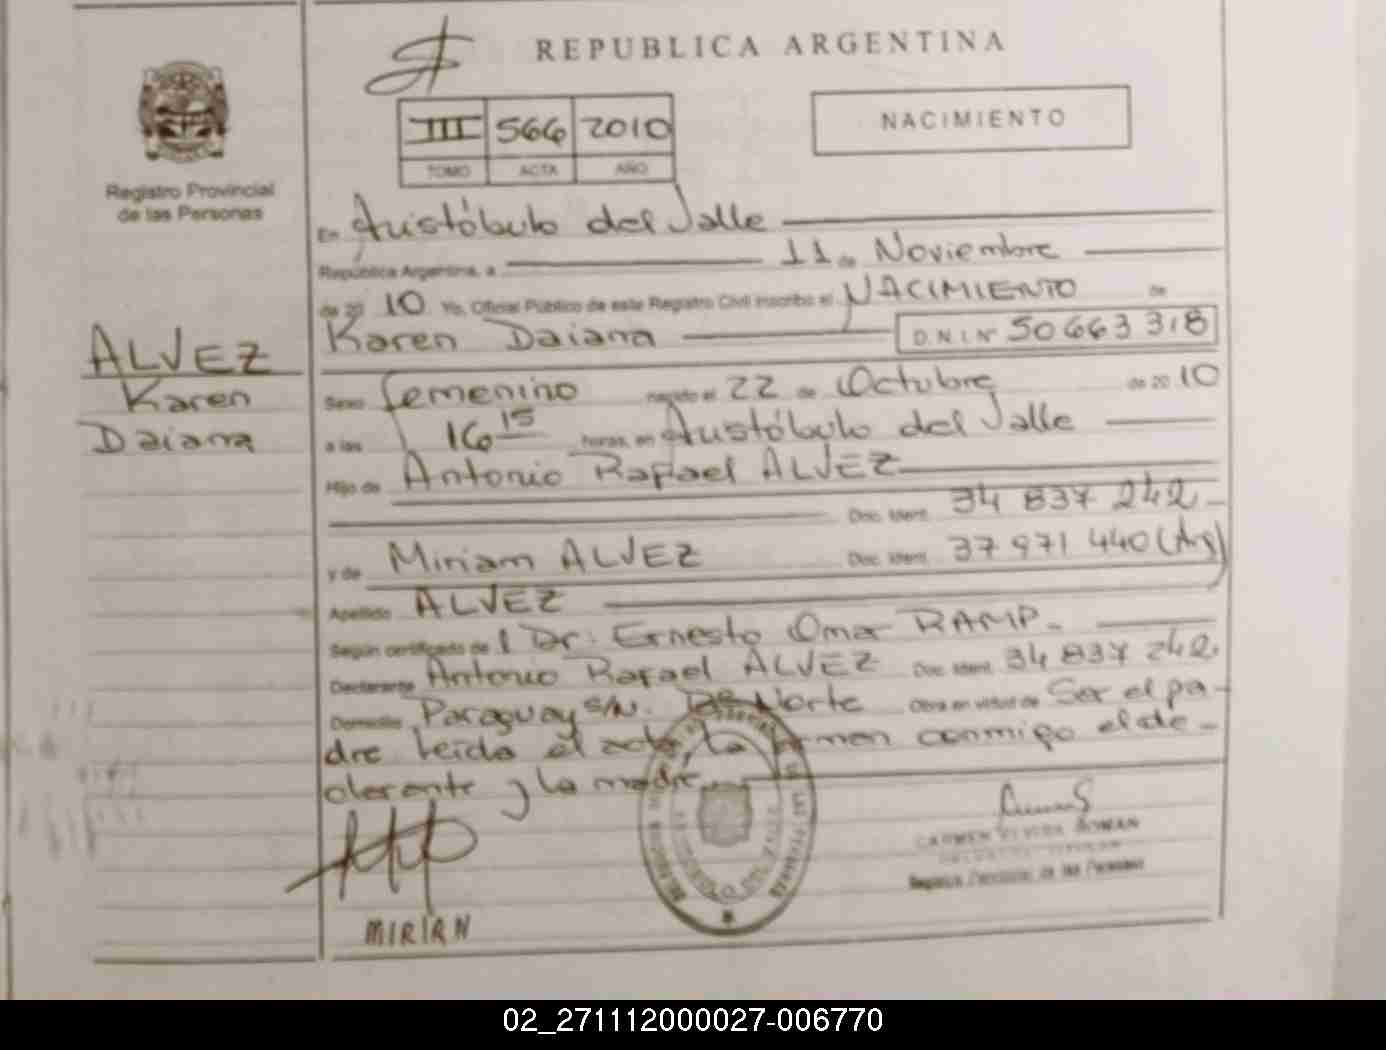 REPUBLICA ARGENTINA
III 566 2010
TOMO ACTA AÑO
NACIMIENTO
Registro Provincial
de las Personas
En Aristóbulo del Valle
República Argentina, a 11 de Noviembre
de 20 10 Yo, Oficial Público de este Registro Civil inscribo el NACIMIENTO de
Karen Daiana D.N.I Nº 50 663 318
ALVEZ
Karen
Daiana
Sexo femenino nacido el 22 de Octubre de 20 10
a las 16 15 horas, en Aristóbulo del Valle
Hijo de Antonio Rafael ALVEZ
Doc. Ident. 34 837 242
y de Miriam ALVEZ Doc. Ident. 37 971 440 (Arg)
Apellido ALVEZ
Según certificado de l Dr. Ernesto Omar RAMP.
Declarante Antonio Rafael ALVEZ Doc. Ident. 34 837 242
Domicilio Paraguay s/N. Del Norte Obra en virtud de Ser el pa-
dre leída el acta, la firman conmigo el de-
clarante y la madre
MIRIAN
Registro Provincial de las Personas
02_271112000027-006770